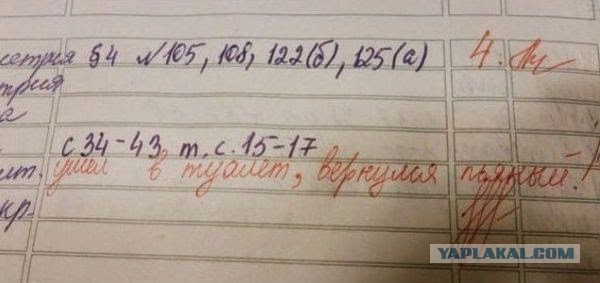 метрия §4 №105, 108, 122(б), 125(а) 4.
трия
а
с 34-43 т. с. 15-17
ит. ушел в туалет, вернулся пьяный!
кр-
YAPLAKAL.COM